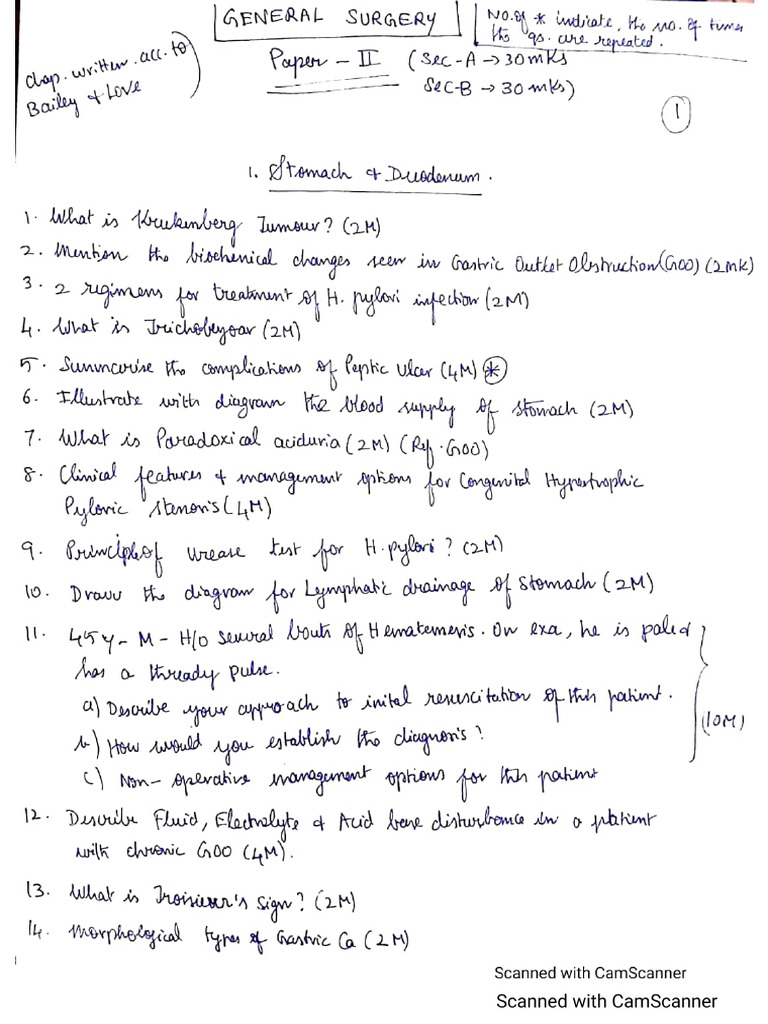 GENERAL SURGERY
No. of * indicate, the no. of times
the qs. are repeated.
Chap. written. acc. to
Bailey & Love
Paper - II (Sec-A → 30 mks
Sec-B → 30 mks)
1
1. Stomach & Duodenum.
1. What is Krukenberg Tumour? (2M)
2. Mention the biochemical changes seen in Gastric Outlet Obstruction (GOO) (2mk)
3. 2 regimens for treatment of H. pylori infection (2M)
4. What is Trichobezoar (2M)
5. Summarise the complications of Peptic Ulcer (4M) *
6. Illustrate with diagram the blood supply of stomach (2M)
7. What is Paradoxical aciduria (2M) (Ref. GOO)
8. Clinical features & management options for Congenital Hypertrophic
Pyloric stenosis (4M)
9. Principle of urease test for H. pylori? (2M)
10. Draw the diagram for Lymphatic drainage of Stomach (2M)
11. 45 y - M - H/o several bouts of Hematemesis. On exa, he is pale &
has a thready pulse.
a) Describe your approach to inital resuscitation of this patient.
b) How would you establish the diagnosis?
(10M)
c) Non-operative management options for this patient
12. Describe Fluid, Electrolyte & Acid base disturbance in a patient
with chronic GOO (4M).
13. What is Troisier's sign? (2M)
14. Morphological types of Gastric Ca (2M)
Scanned with CamScanner
Scanned with CamScanner